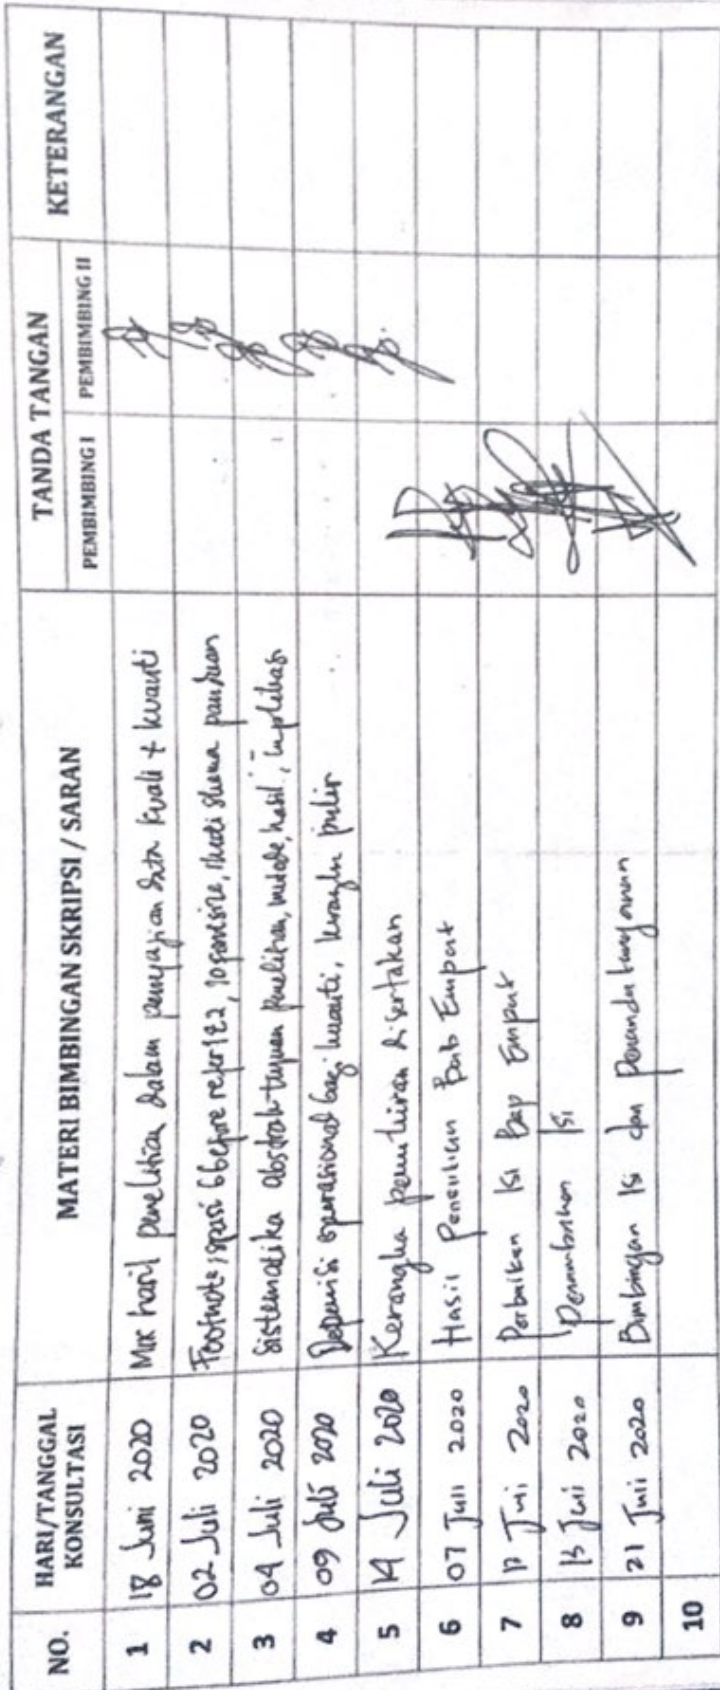 NO. HARI/TANGGAL KONSULTASI MATERI BIMBINGAN SKRIPSI / SARAN TANDA TANGAN KETERANGAN
PEMBIMBING I PEMBIMBING II
1 18 Juni 2020 Mix hasil penelitian dalam penyajian data kuali + kuanti
2 02 Juli 2020 Footnote, spasi 6 before refer 1&2, skema panduan
3 04 Juli 2020 Sistematika abstrak-tujuan penelitian, metode, hasil, implikasi
4 09 Juli 2020 operasional bagi kuanti, kerangka pikir
5 14 Juli 2020 Kerangka pemikiran disertakan
6 07 Juli 2020 Hasil Penelitian Bab Empat
7 Juli 2020 Perbaikan Isi Bap Empat
8 Juli 2020 Penambahan Isi
9 21 Juli 2020 Bimbingan Isi dan Penandatanganan
10